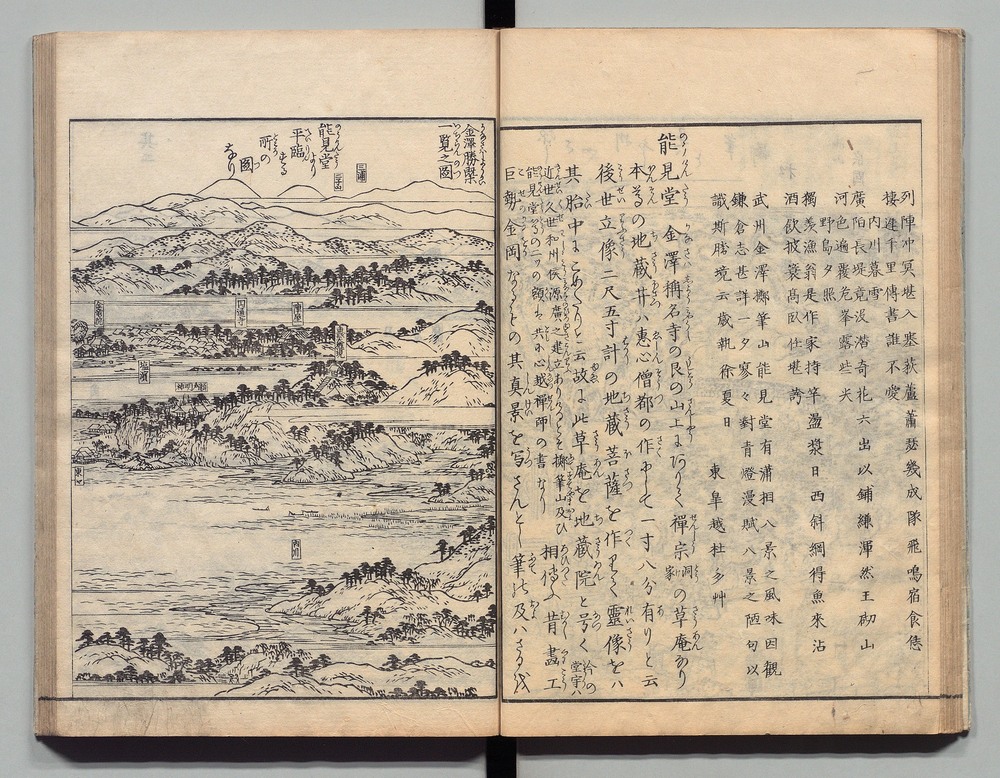 列陣冲冥堪入塞荻蘆蕭瑟幾成隊飛鳴宿食恁
棲遲千里傳書誰不愛
内川暮雪
廣陌長堤竟没潜奇花六出以鋪縑渾然玉砌山
河色遍覆危峯露些尖
野島夕照
獨羨漁翁是作家持竿盪漿日西斜網得魚來沽
酒飲披蓑高臥任堪誇
武州金澤擲筆山能見堂有瀟相八景之風味因觀
鎌倉志甚詳一夕寥々對青燈漫賦八景之陋句以
識斯勝境云歳執徐夏日
東皐越杜多艸
能見堂
金澤稱名寺の艮の山上にありて禪宗洞家の草庵なり
本尊の地蔵井ハ惠心僧都の作にして一寸八分有りと云
後世立像二尺五寸計の地蔵菩薩を作りて靈像をハ
其胎中にこめたりと云故に此草庵を地蔵院と号く今の堂宇ハ
近世久世和州侯源廣之建立ありしとそ擲筆山及ひ
能見堂等の二の額ハ共に心越禅師の書なり
相傳ふ昔畫工
巨勢金岡なるもの其真景を写さんとし筆の及ハさるを
金澤勝槩
一覧之圖
能見堂
より
平臨
する
所の
圖
なり
三浦
内川